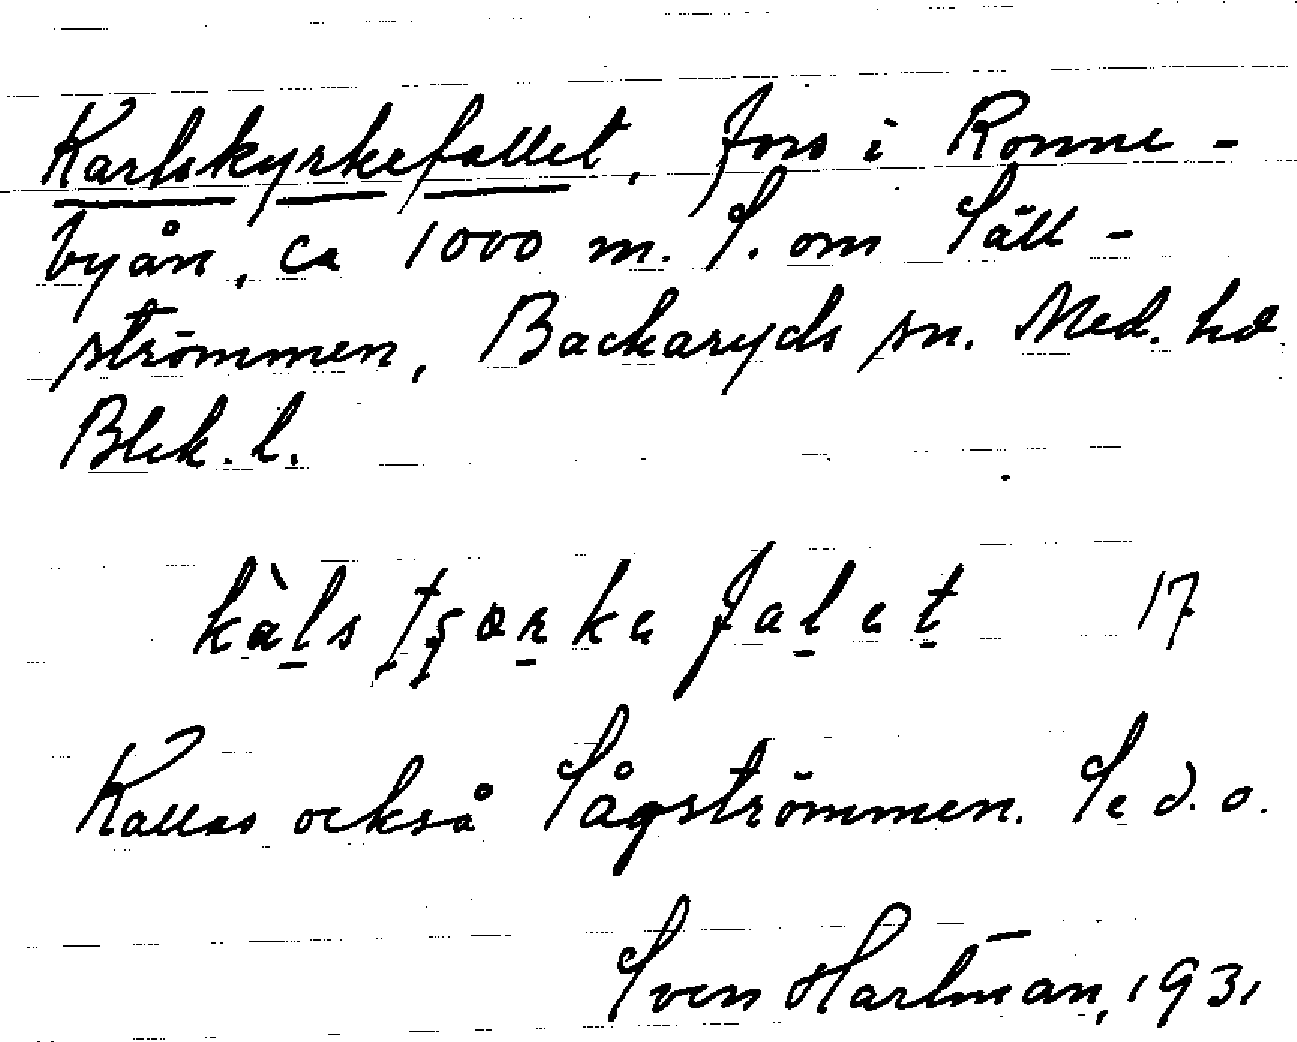 Karlskyrkefallet, fors i Ronne-
byån, ca 1000 m. S. om Sätt-
strömmen, Backaryds sn. Med. hd
Blek. l.
17
Kallas också Sågströmmen. Se d. o.
Sven Hartman, 1931